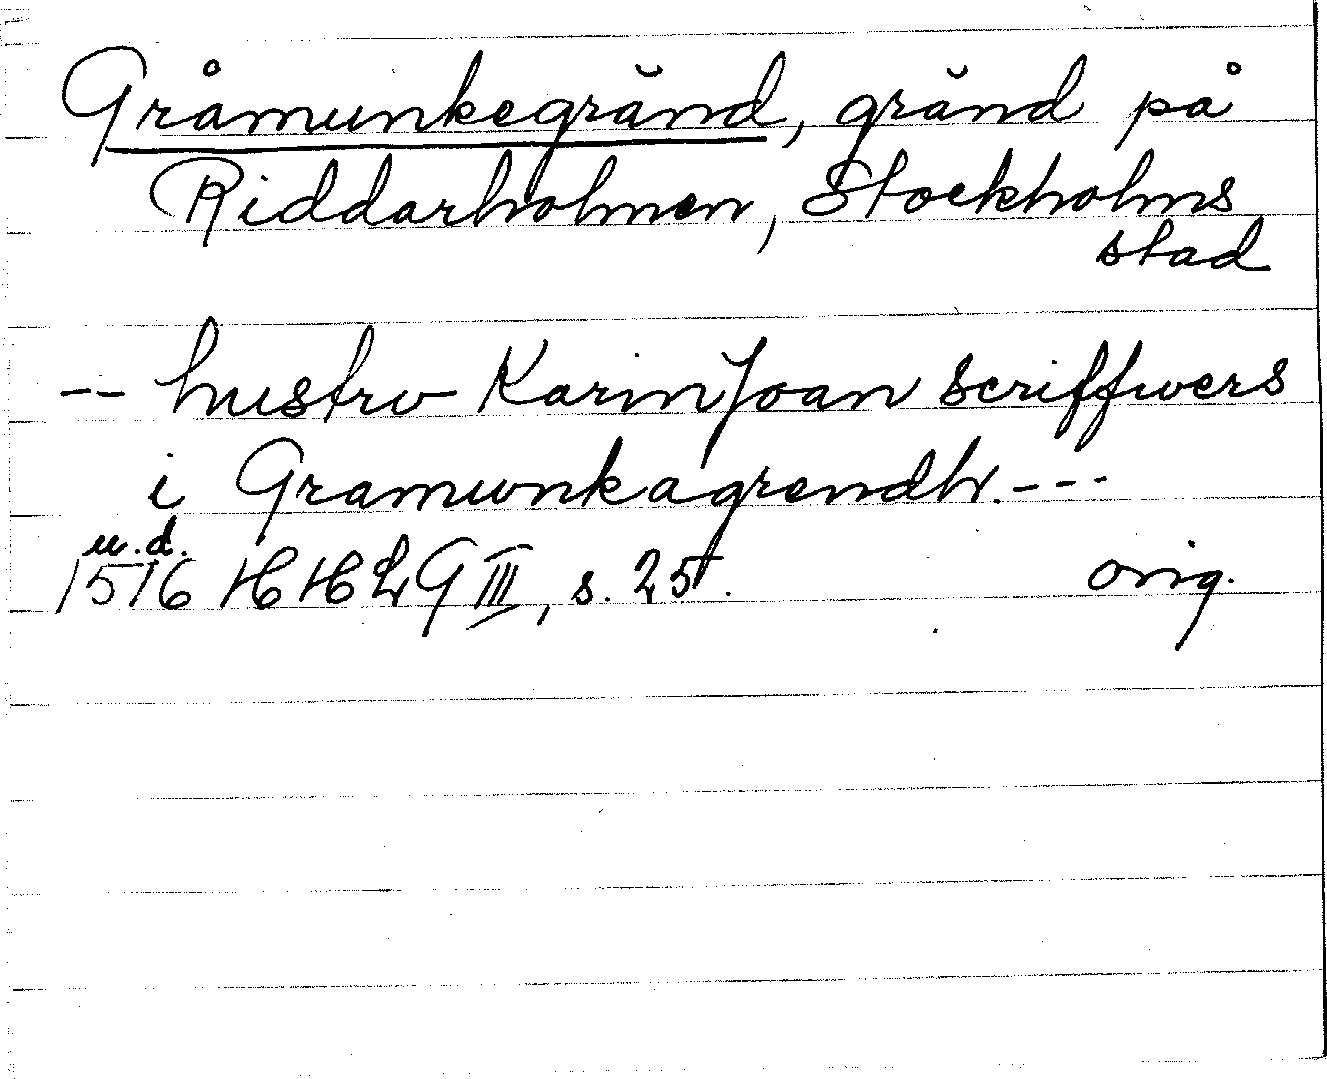 Gråmunkegränd, gränd på
Riddarholmen, Stockholms
stad
-- hustrv Karin Joan scriffwers
i Gramwnkagrendh. ---
u.d.
1576 HHLG III, s. 25. orig.